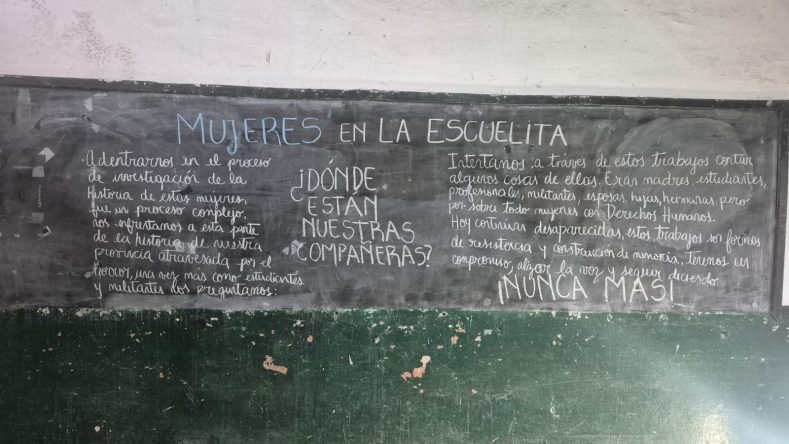 MUJERES EN LA ESCUELITA
· Adentrarnos en el proceso
de investigación de la
Historia de estas mujeres,
fue un proceso complejo,
nos enfrentamos a esta parte
de la historia de nuestra
provincia atravesada por el
horror, una vez más como estudiantes
y militantes nos preguntamos:
¿DÓNDE
ESTÁN
NUESTRAS
COMPAÑERAS?
Intentamos a tráves de estos trabajos contar
algunas cosas de ellas. Eran madres, estudiantes,
profesionales, militantes, esposas, hijas, hermanas, pero
por sobre todo mujeres con Derechos Humanos.
Hoy continúan desaparecidas, estos trabajos son formas
de resistencia y construcción de memoria, tenemos un
compromiso, alzar la voz y seguir diciendo
¡NUNCA MÁS!